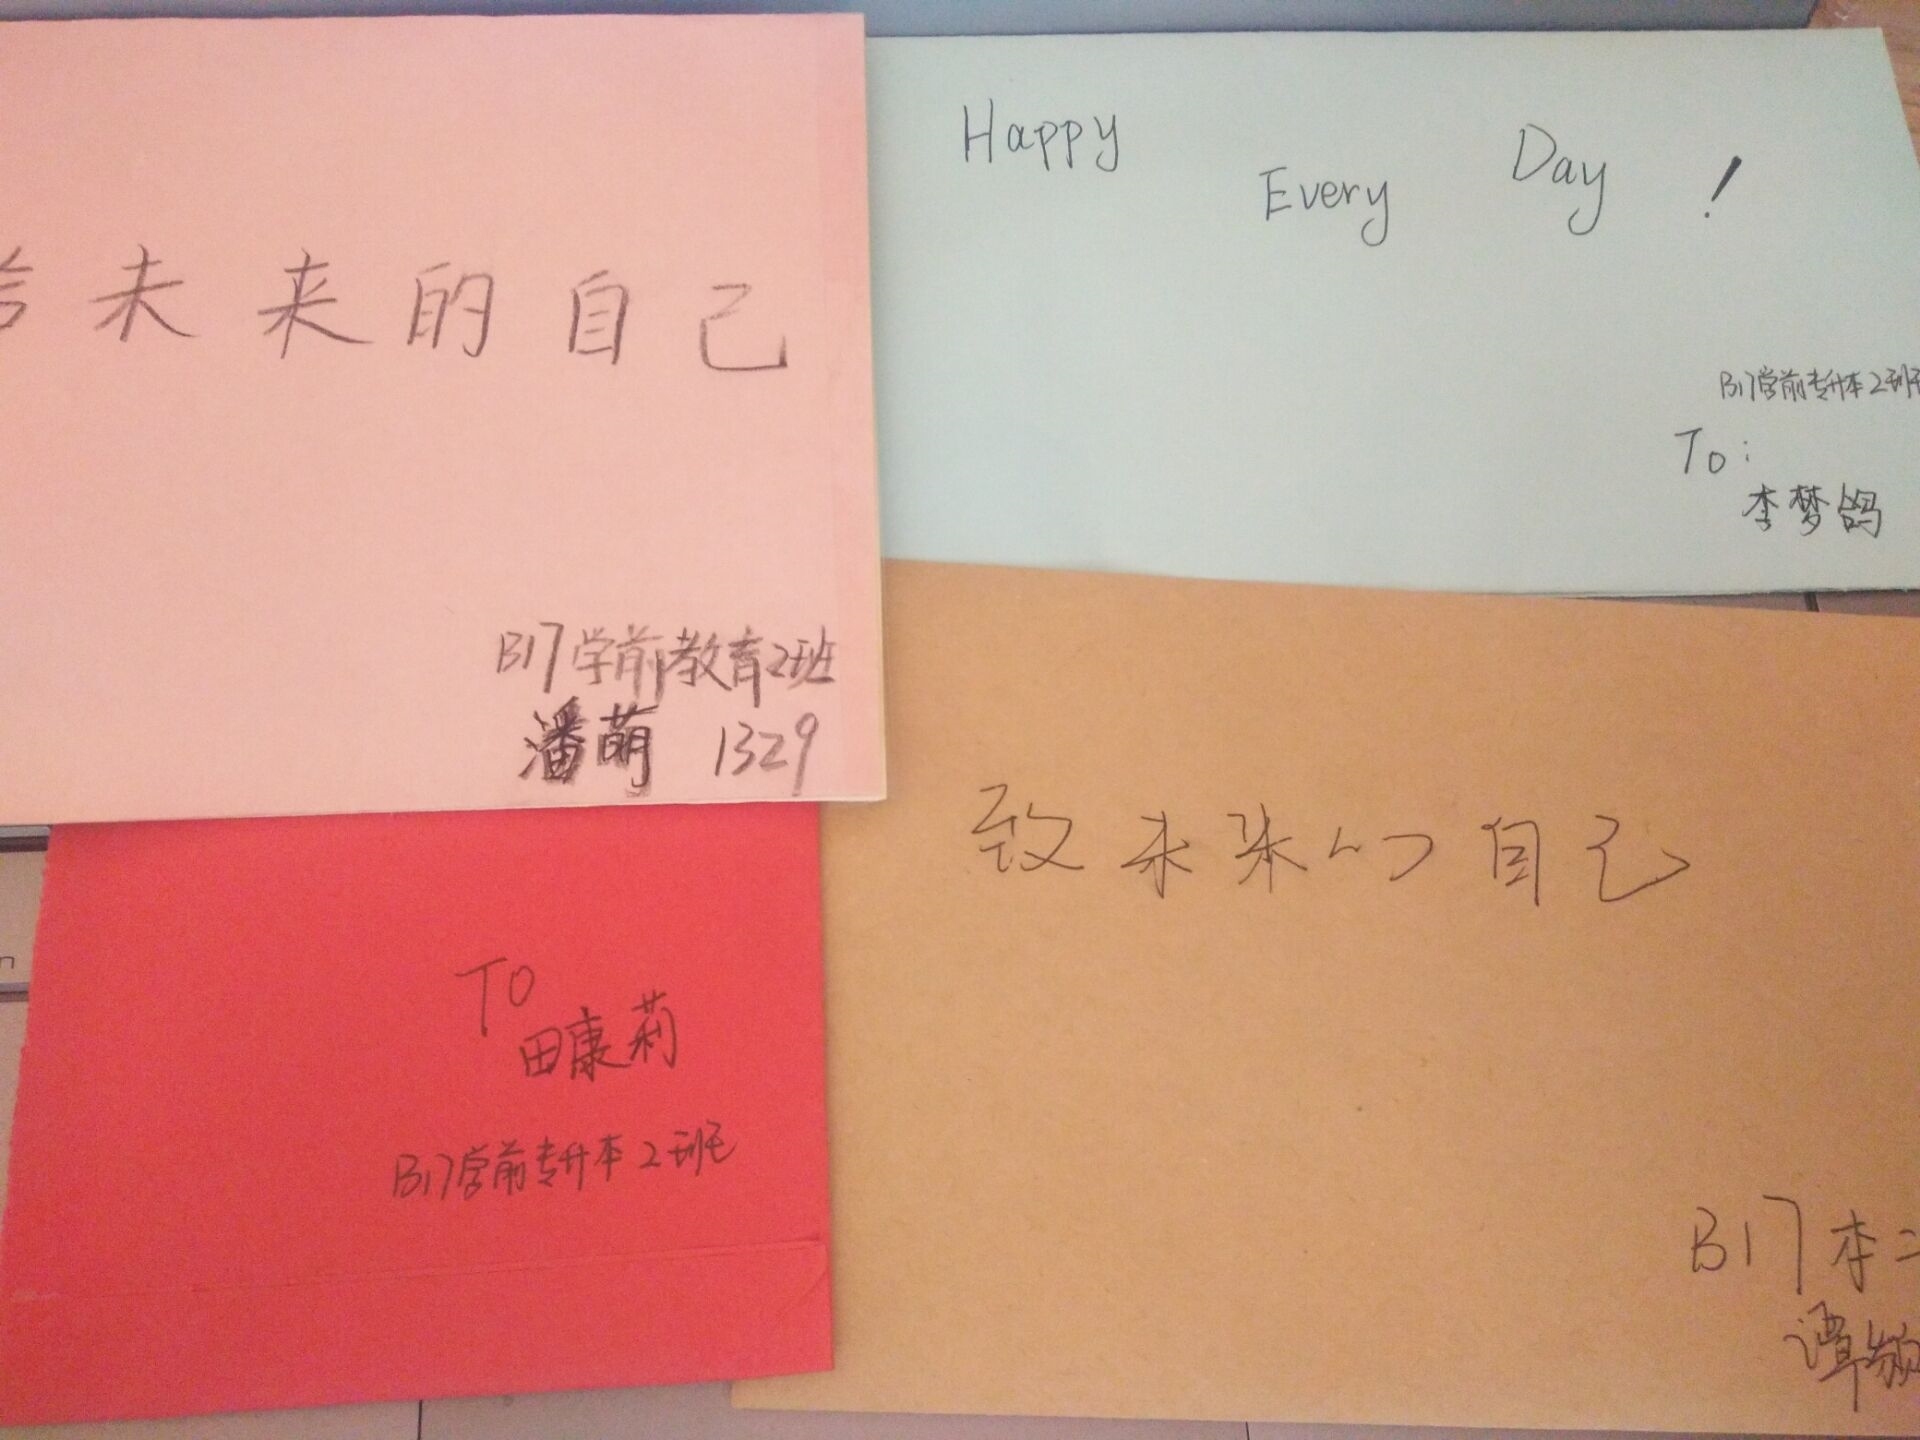 给未来的自己
B17学前教育2班
潘萌 1329
Happy Every Day !
B17学前专升本2班
To:
李梦鸽
TO
田康莉
B17学前专升本2班
致未来的自己
B17本二
谭颖